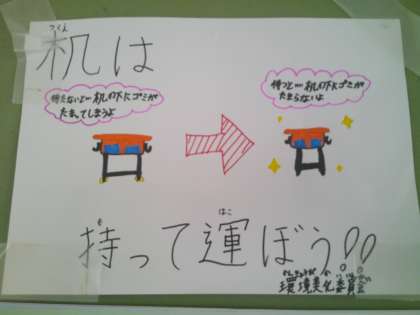 つくえ
机は
持たないと…机の下にゴミが
たまってしまうよ
持つと…机の下にゴミが
たまらないよ
も
はこ
持って運ぼう!!
かんきょうびか いいんかい
環境美化委員会